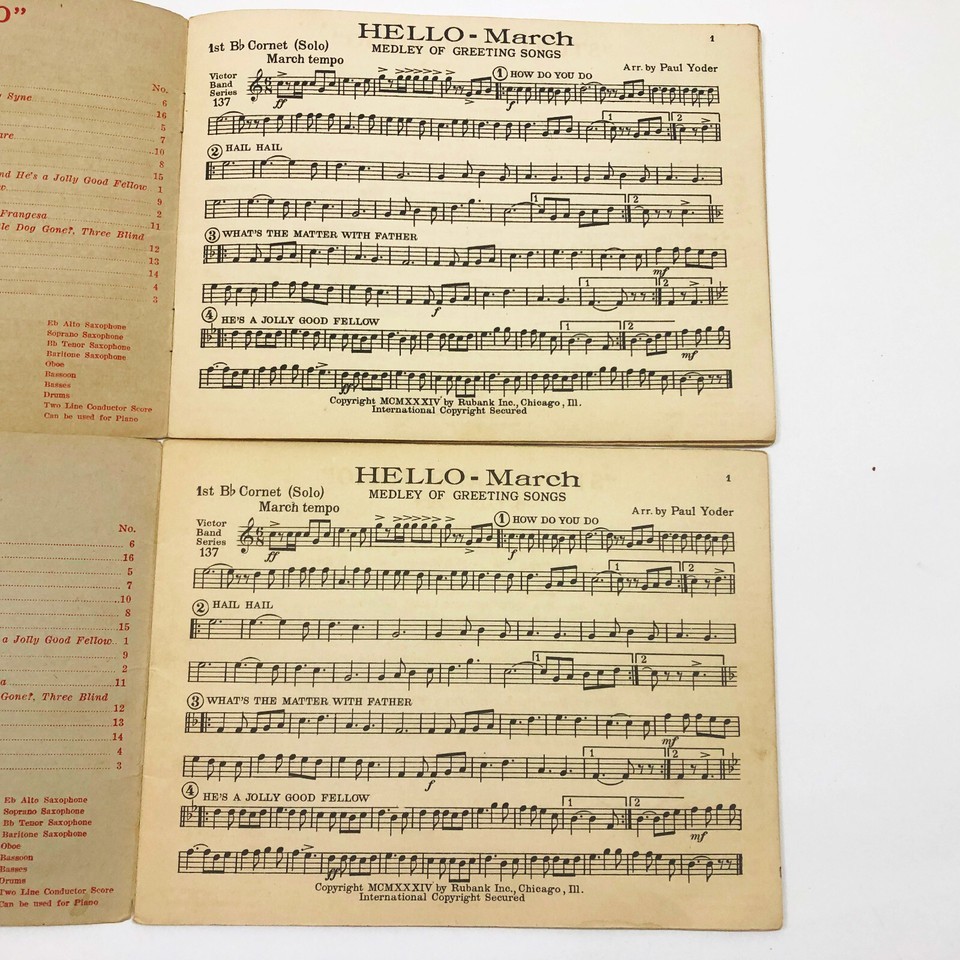 O”
No.
Syne
6
16
5
7
..10
8
15
nd He's a Jolly Good Fellow 1
9
Frangesa 2
11
le Dog Gone?, Three Blind
12
13
14
4
3
Eb Alto Saxophone
Soprano Saxophone
Bb Tenor Saxophone
Baritone Saxophone
Oboe
Bassoon
Basses
Drums
Two Line Conductor Score
Can be used for Piano
HELLO - March
1
1st B♭ Cornet (Solo)
MEDLEY OF GREETING SONGS
March tempo
Arr. by Paul Yoder
Victor
Band
Series
137
1 HOW DO YOU DO
ff
f
1
2
2 HAIL HAIL
1
2
3 WHAT'S THE MATTER WITH FATHER
mf
f
1
2
4 HE'S A JOLLY GOOD FELLOW
1
2
mf
ff
Copyright MCMXXXIV by Rubank Inc., Chicago, Ill.
International Copyright Secured
No.
6
16
5
7
..10
8
15
a Jolly Good Fellow.. 1
9
2
a 11
Gone?, Three Blind
12
13
14
4
3
Eb Alto Saxophone
Soprano Saxophone
Bb Tenor Saxophone
Baritone Saxophone
Oboe
Bassoon
Basses
Drums
Two Line Conductor Score
Can be used for Piano
HELLO - March
1
1st B♭ Cornet (Solo)
MEDLEY OF GREETING SONGS
March tempo
Arr. by Paul Yoder
Victor
Band
Series
137
1 HOW DO YOU DO
ff
f
1
2
2 HAIL HAIL
1
2
3 WHAT'S THE MATTER WITH FATHER
mf
f
1
2
4 HE'S A JOLLY GOOD FELLOW
1
2
mf
ff
Copyright MCMXXXIV by Rubank Inc., Chicago, Ill.
International Copyright Secured